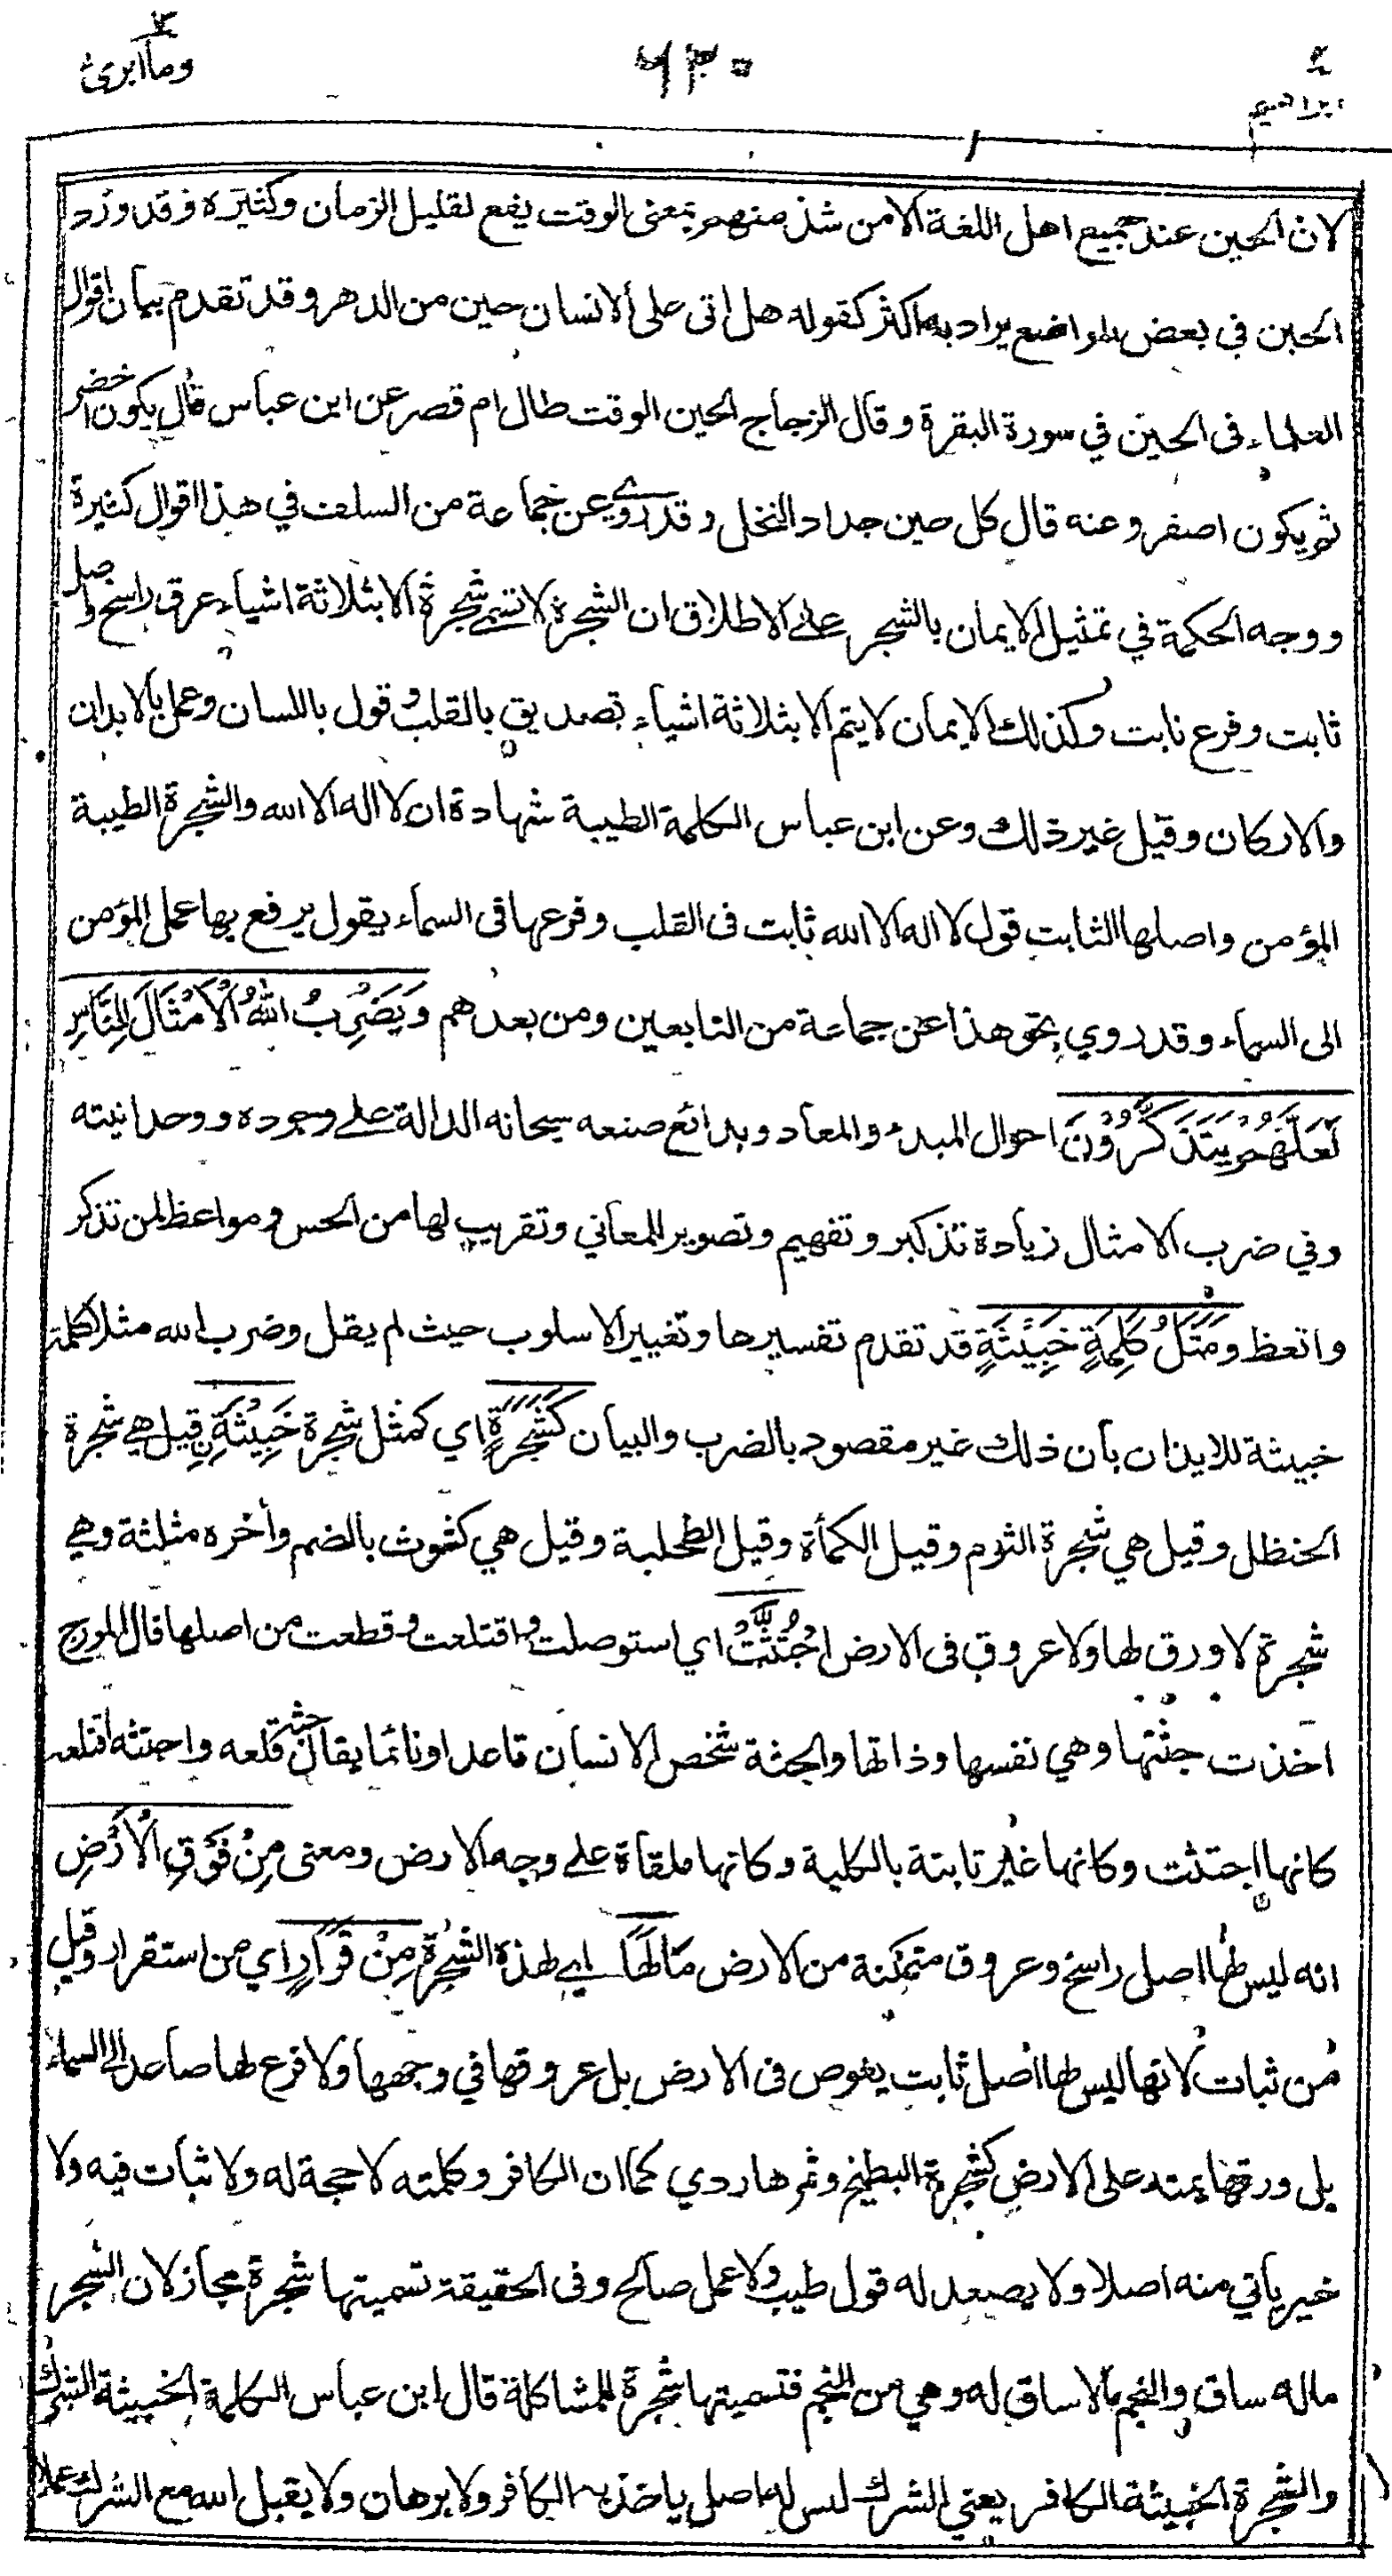 ابراهيم ٦٣٠ وما ابرئ
لان الحين عند جميع اهل اللغة الا من شذ منهم بمعنى الوقت يقع لقليل الزمان وكثيره وقد ورد
الحين في بعض المواضع يراد به اكثر كقوله هل اتى على الانسان حين من الدهر وقد تقدم بيان اقوال
العلماء في الحين في سورة البقرة وقال الزجاج الحين الوقت طال ام قصر عن ابن عباس قال يكون اخضر
ثم يكون اصفر وعنه قال كل حين جداد النخل وقد روي عن جماعة من السلف في هذا اقوال كثيرة
ووجه الحكمة في تمثيل الايمان بالشجر على الاطلاق ان الشجرة لا تسمى شجرة الا بثلاثة اشياء عرق راسخ واصل
ثابت وفرع نابت وكذلك الايمان لا يتم الا بثلاثة اشياء تصديق بالقلب وقول باللسان وعمل بالابدان
والاركان وقيل غير ذلك وعن ابن عباس الكلمة الطيبة شهادة ان لا اله الا الله والشجرة الطيبة
المؤمن واصلها الثابت قول لا اله الا الله ثابت في القلب وفرعها في السماء يقول يرفع بها عمل المؤمن
الى السماء وقد روي بنحو هذا عن جماعة من التابعين ومن بعدهم وَيَضْرِبُ اللهُ الْاَمْثَالَ لِلنَّاسِ
لَعَلَّهُمْ يَتَذَكَّرُوْنَ احوال المبدء والمعاد وبدائع صنعه سبحانه الدالة على وجوده ووحدانيته
وفي ضرب الامثال زيادة تذكير وتفهيم وتصوير للمعاني وتقريب لها من الحس ومواعظ لمن تذكر
واتعظ وَمَثَلُ كَلِمَةٍ خَبِيْثَةٍ قد تقدم تفسيرها وتغيير الاسلوب حيث لم يقل وضرب الله مثلا كلمة
خبيثة للايذان بان ذلك غير مقصود بالضرب والبيان كَشَجَرَةٍ اي كمثل شجرة خَبِيْثَةِ نِ قيل هي شجرة
الحنظل وقيل هي شجرة الثوم وقيل الكمأة وقيل الطحلبة وقيل هي كشوث بالضم وأخره مثلثة وهي
شجرة لا ورق لها ولا عروق في الارض اجْتُثَّتْ اي استوصلت واقتلعت وقطعت من اصلها قال المورج
اخذت جثتها وهي نفسها وذاتها والجثة شخص الانسان قاعدا او نائما يقال جثه قلعه واجتثه اقتلعه
كانها اجتثت وكانها غير ثابتة بالكلية وكانها ملقاة على وجه الارض ومعنى مِنْ فَوْقِ الْاَرْضِ
انه ليس لها اصل راسخ وعروق متمكنة من الارض مَا لَهَا اي لهذه الشجرة مِنْ قَرَارٍ اي من استقرار وقيل
من ثبات لانها ليس لها اصل ثابت يغوص في الارض بل عروقها في وجهها ولا فرع لها صاعد الى السماء
بل ورقها يمتد على الارض كشجرة البطيخ وثمرها ردي كما ان الكافر وكلمته لا حجة له ولا ثبات فيه ولا
خير ياتي منه اصلا ولا يصعد له قول طيب ولا عمل صالح وفي الحقيقة تسميتها شجرة مجاز لان الشجر
ماله ساق والنجم مالا ساق له وهي من النجم فتسميتها شجرة للمشاكلة قال ابن عباس الكلمة الخبيثة الشرك
والشجرة الخبيثة الكافر يعني الشرك ليس له اصل ياخذ به الكافر ولا برهان ولا يقبل الله مع الشرك عملا